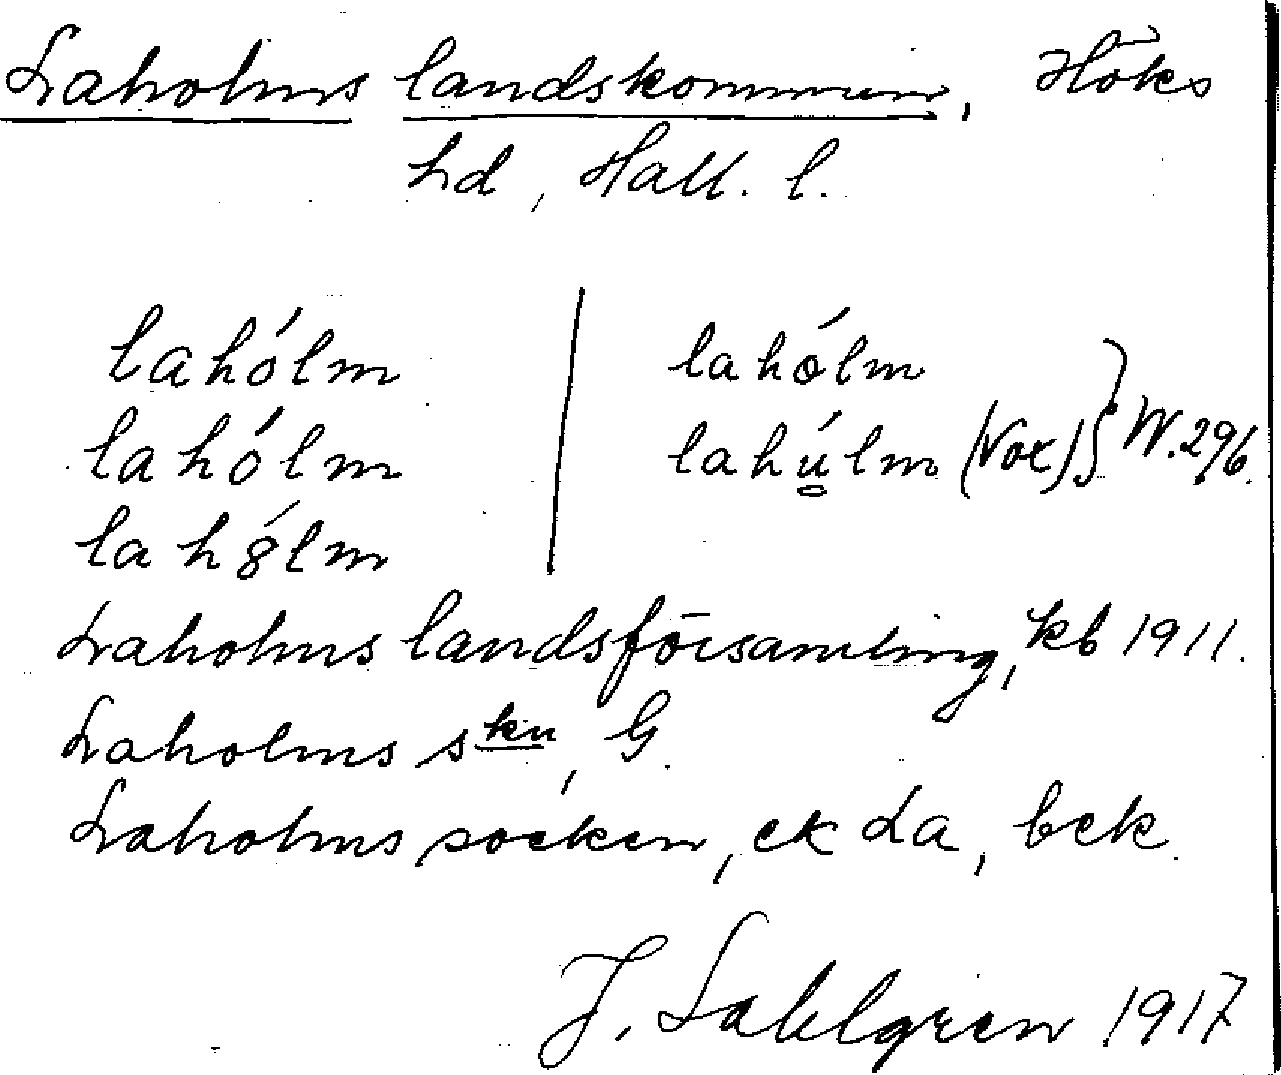 Laholms landskommun, Höks
hd, Hall. l.
lahólm | lahólm
lahólm | lahúlm (Vox) } W. 296.
lahólm
Laholms landsförsamling, kb 1911.
Laholms skn, G.
Laholms socken, ek La, bek.
J. Sahlgren 1917